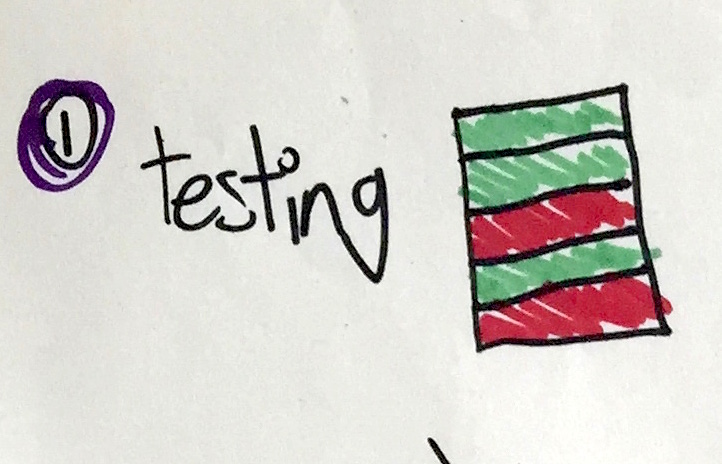 ① testing